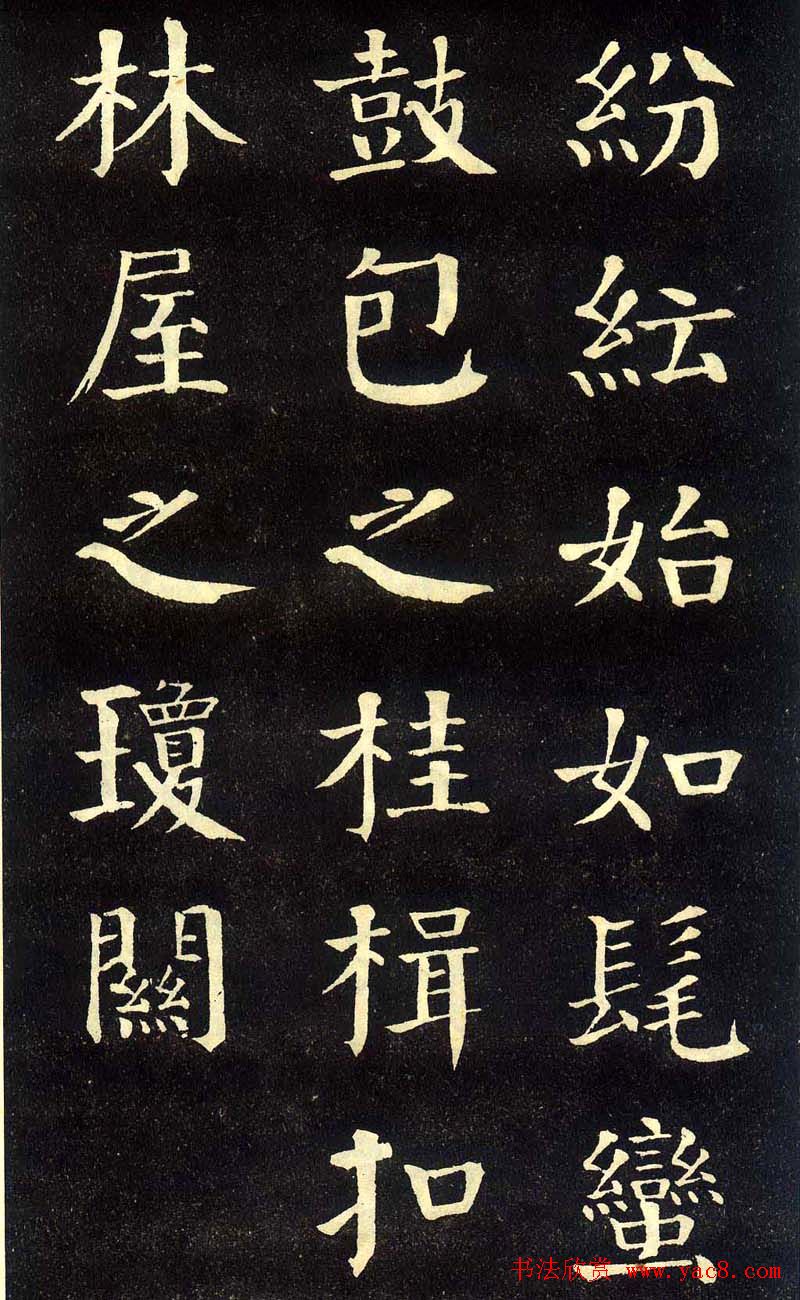 紛紜始如髦蠻
鼓包之桂楫扣
林屋之瓊關
书法欣赏 www.yac8.com